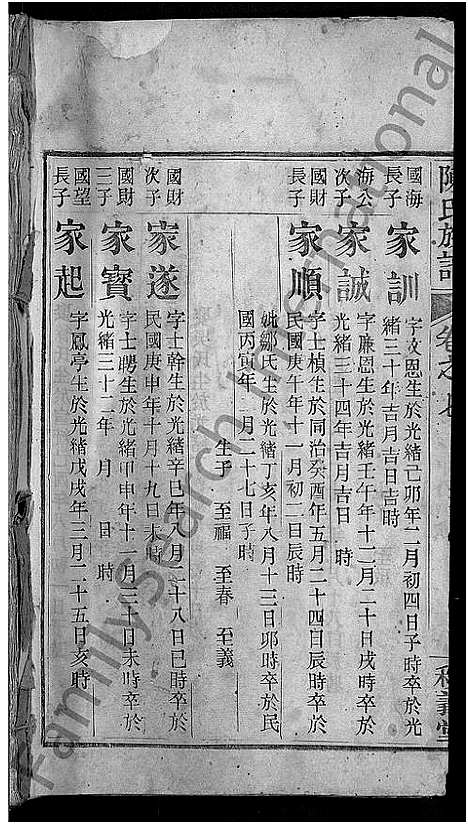 陳氏族譜
卷之七
國海
長子
家訓
字文恩生於光緒己卯年二月初四日子時卒於光
緒三十年吉月吉日吉時
海公
次子
家誠
字廉恩生於光緒壬午年十二月二十日戌時卒於
光緒三十四年吉月吉日 時
國財
長子
家順
字士楨生於同治癸酉年五月二十四日辰時卒於
民國庚午年十一月初二日辰時
妣鄒氏生於光緒丁亥年八月十三日卯時卒於民
國丙寅年 月二十七日子時
生子 至福 至春 至義
國財
次子
家遂
字士幹生於光緒辛巳年八月二十八日巳時卒於
民國庚申年十月十九日未時
國財
三子
家寶
字士聘生於光緒甲申年十一月三十日未時卒於
光緒三十二年 月 日 時
國望
長子
家起
字鳳亭生於光緒戊戌年三月二十五日亥時
Familysearch International